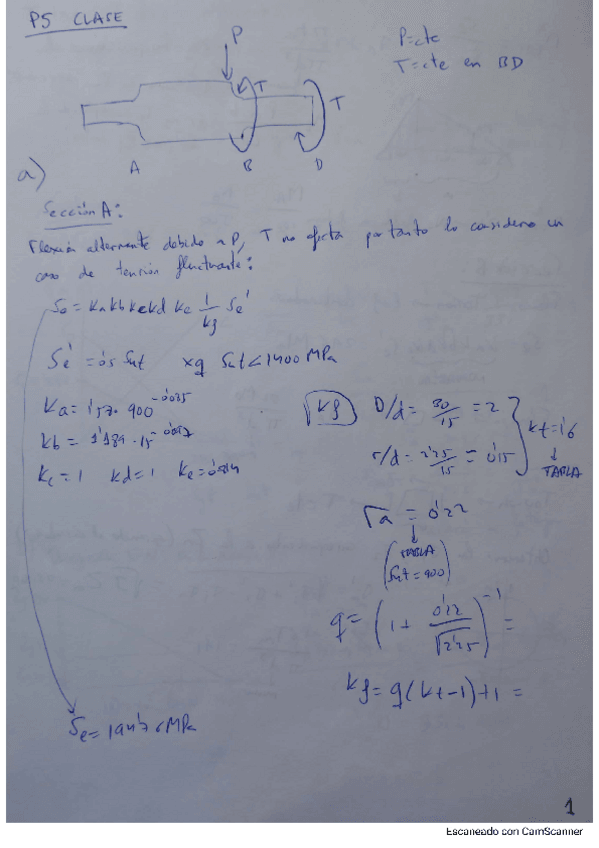 P5 CLASE
P
P=cte
T=cte en BD
T
T
A
B
D
a)
Sección A:
Flexión alternante debido a P, T no afecta por tanto lo considero un
caso de tensión fluctuante:
Se = ka kb kc kd ke 1/kf Se'
Se' = 0'5 Sut xq Sut < 1400 MPa
Ka = 1'57 · 900^-0'085
kb = 1'189 · 15^-0'097
kc = 1 kd = 1 ke = 0'814
Kf D/d = 30/15 = 2
r/d = 2'25/15 = 0'15
kt = 1'6
TABLA
√a = 0'22
(TABLA
Sut = 900)
q = (1 + 0'22/√2'25)^-1 =
kf = q(kt-1)+1 =
Se = MPa
1
Escaneado con CamScanner